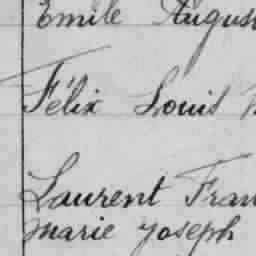 Emile Augus
Félix Louis
Laurent Fran
marie Joseph